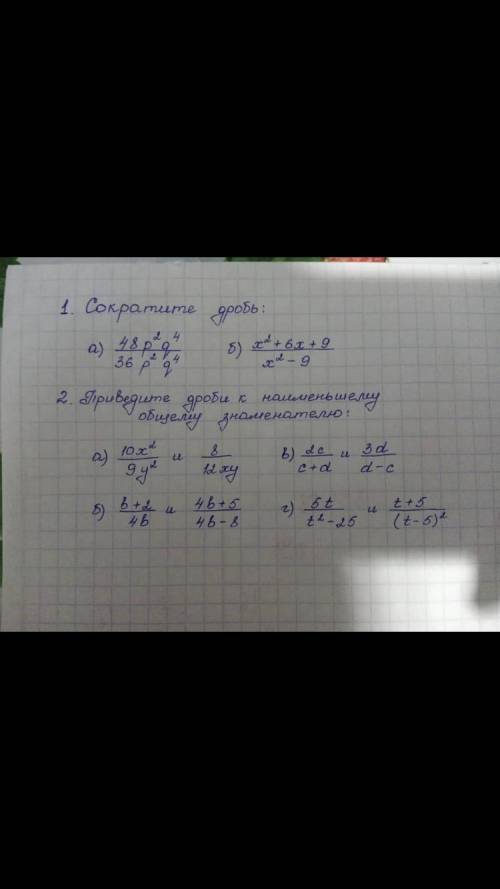 1. Сократите дробь:
а) 48p²q⁴/36p²q⁴ б) x²+6x+9/x²-9
2. Приведите дроби к наименьшему
общему знаменателю:
а) 10x²/9y² и 8/12xy в) 2c/c+d и 3d/d-c
б) b+2/4b и 4b+5/4b-8 г) 5t/t²-25 и t+5/(t-5)²